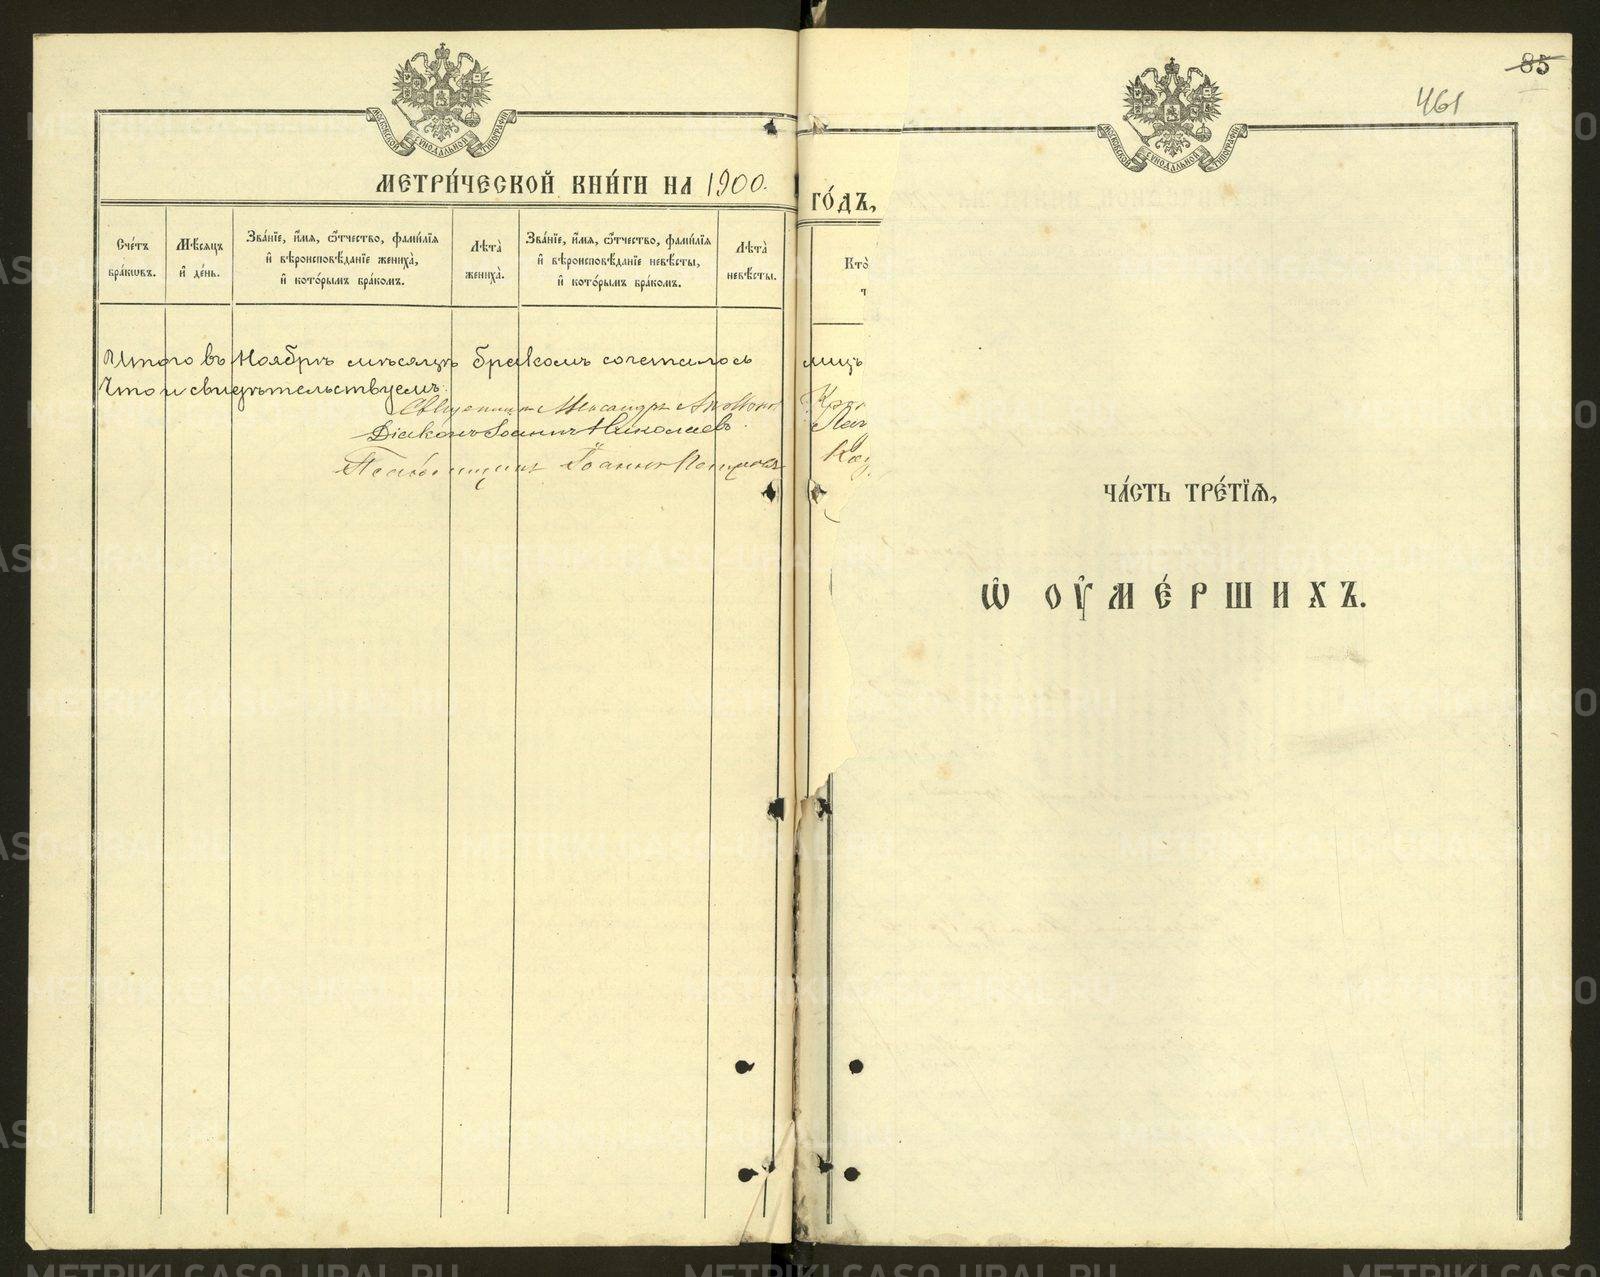 МОСКОВСКОЙ СѴНОДАЛЬНОЙ ТИПОГРАФІИ
МЕТРИ́ЧЕСКОЙ КНИ́ГИ НА 1900.
Сче́тъ бра́кѡвъ.
Мѣ́сяцъ и҆ де́нь.
Зва́нїе, и҆́мя, ѻ҆́тчество, фами́лїя и҆ вѣроисповѣ́данїе жениха̀, и҆ кото́рымъ бра́комъ.
Лѣта̀ жениха̀.
Зва́нїе, и҆́мя, ѻ҆́тчество, фами́лїя и҆ вѣроисповѣ́данїе невѣ́сты, и҆ кото́рымъ бра́комъ.
Лѣта̀ невѣ́сты.
Итого въ Ноябрѣ мѣсяцѣ бракомъ сочеталось лицъ
Что и свидѣтельствуемъ:
Священникъ Александръ
Діаконъ Іоаннъ Николаевъ.
Псаломщикъ Іоаннъ
ГО́ДЪ,
Кто̀
85
461
МОСКОВСКОЙ СѴНОДАЛЬНОЙ ТИПОГРАФІИ
ЧА́СТЬ ТРЕ́ТЇѦ,
Ѡ҆ ОУ҆МЕ́РШИХЪ.
METRIKI.GASO-URAL.RU